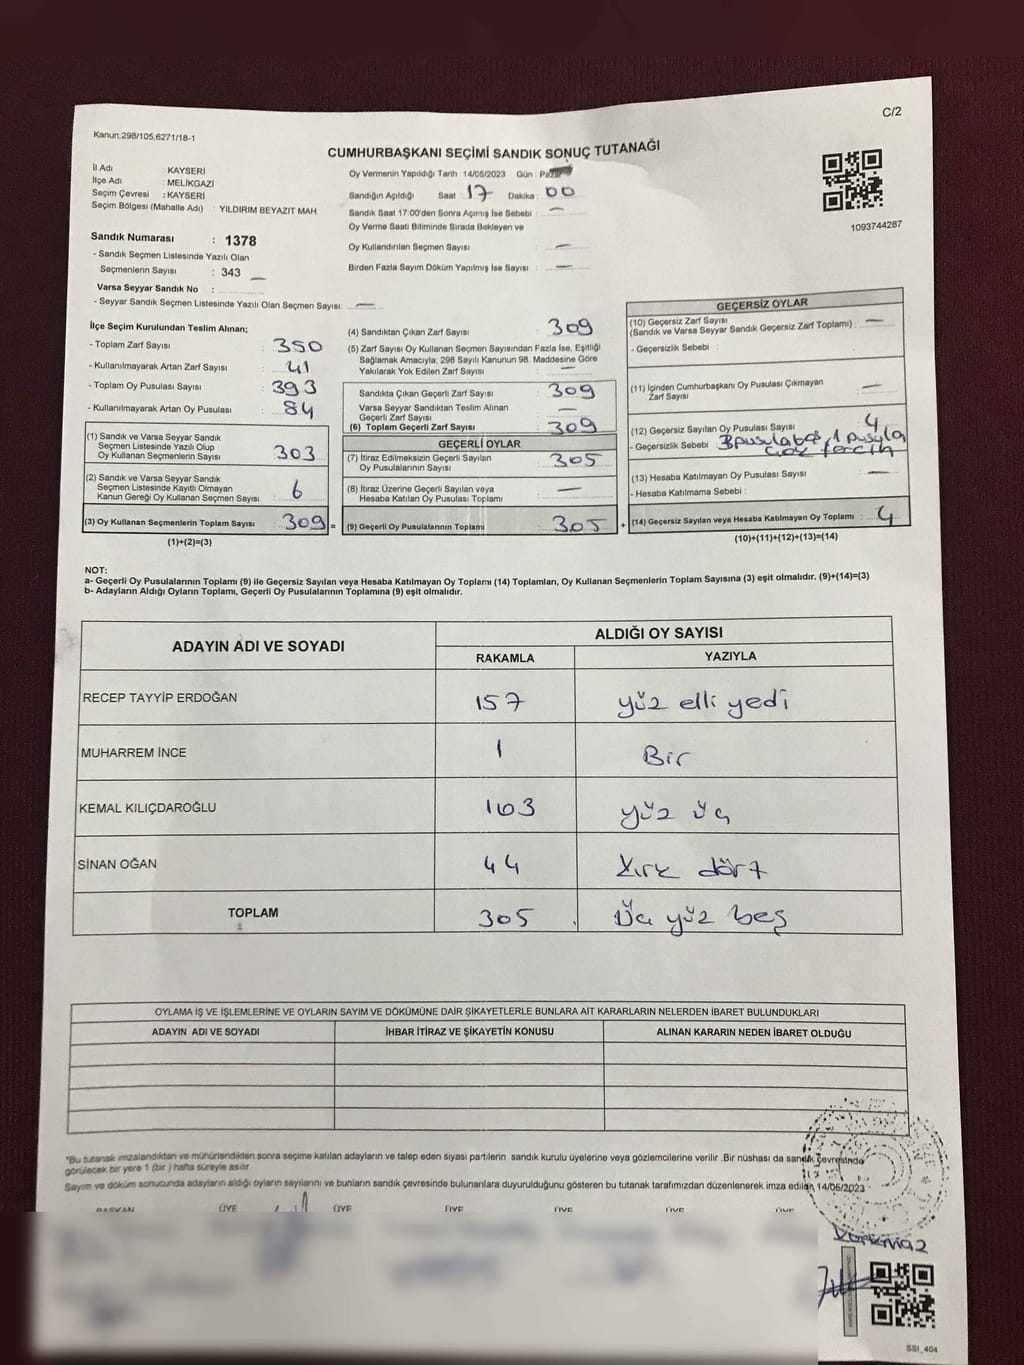 Kanun:298/105,6271/18-1
C/2
CUMHURBAŞKANI SEÇİMİ SANDIK SONUÇ TUTANAĞI
İl Adı : KAYSERİ
İlçe Adı : MELİKGAZİ
Seçim Çevresi : KAYSERİ
Seçim Bölgesi (Mahalle Adı) : YILDIRIM BEYAZIT MAH.
Sandık Numarası : 1378
- Sandık Seçmen Listesinde Yazılı Olan
Seçmenlerin Sayısı : 343
Varsa Seyyar Sandık No :
- Seyyar Sandık Seçmen Listesinde Yazılı Olan Seçmen Sayısı: —
Oy Vermenin Yapıldığı Tarih :14/05/2023 Gün : Pazar
Sandığın Açıldığı Saat 17 Dakika : 00
Sandık Saat 17:00'den Sonra Açımış İse Sebebi : —
Oy Verme Saati Bitiminde Sırada Bekleyen ve
Oy Kullandırılan Seçmen Sayısı : —
Birden Fazla Sayım Döküm Yapılmış İse Sayısı : —
1093744287
İlçe Seçim Kurulundan Teslim Alınan;
- Toplam Zarf Sayısı : 350
- Kullanılmayarak Artan Zarf Sayısı : 41
- Toplam Oy Pusulası Sayısı : 393
- Kullanılmayarak Artan Oy Pusulası : 84
(1) Sandık ve Varsa Seyyar Sandık
Seçmen Listesinde Yazılı Olup
Oy Kullanan Seçmenlerin Sayısı : 303
(2) Sandık ve Varsa Seyyar Sandık
Seçmen Listesinde Kayıtlı Olmayan
Kanun Gereği Oy Kullanan Seçmen Sayısı : 6
(3) Oy Kullanan Seçmenlerin Toplam Sayısı : 309 =
(1)+(2)=(3)
(4) Sandıktan Çıkan Zarf Sayısı : 309
(5) Zarf Sayısı Oy Kullanan Seçmen Sayısından Fazla İse, Eşitliği
Sağlamak Amacıyla; 298 Sayılı Kanunun 98. Maddesine Göre
Yakılarak Yok Edilen Zarf Sayısı : —
Sandıkta Çıkan Geçerli Zarf Sayısı : 309
Varsa Seyyar Sandıktan Teslim Alınan
Geçerli Zarf Sayısı : —
(6) Toplam Geçerli Zarf Sayısı : 309
GEÇERLİ OYLAR
(7) İtiraz Edilmeksizin Geçerli Sayılan
Oy Pusulalarının Sayısı : 305
(8) İtiraz Üzerine Geçerli Sayılan veya
Hesaba Katılan Oy Pusulası Toplamı : —
(9) Geçerli Oy Pusulalarının Toplamı : 305 +
GEÇERSİZ OYLAR
(10) Geçersiz Zarf Sayısı
(Sandık ve Varsa Seyyar Sandık Geçersiz Zarf Toplamı) : —
- Geçersizlik Sebebi :
(11) İçinden Cumhurbaşkanı Oy Pusulası Çıkmayan
Zarf Sayısı : —
(12) Geçersiz Sayılan Oy Pusulası Sayısı : 4
- Geçersizlik Sebebi : 3 pusula boş, 1 pusula
çok tercih
(13) Hesaba Katılmayan Oy Pusulası Sayısı : —
- Hesaba Katılmama Sebebi :
(14) Geçersiz Sayılan veya Hesaba Katılmayan Oy Toplamı : 4
(10)+(11)+(12)+(13)=(14)
NOT:
a- Geçerli Oy Pusulalarının Toplamı (9) ile Geçersiz Sayılan veya Hesaba Katılmayan Oy Toplamı (14) Toplamları, Oy Kullanan Seçmenlerin Toplam Sayısına (3) eşit olmalıdır. (9)+(14)=(3)
b- Adayların Aldığı Oyların Toplamı, Geçerli Oy Pusulalarının Toplamına (9) eşit olmalıdır.
ADAYIN ADI VE SOYADI ALDIĞI OY SAYISI
RAKAMLA YAZIYLA
RECEP TAYYİP ERDOĞAN 157 yüz elli yedi
MUHARREM İNCE 1 Bir
KEMAL KILIÇDAROĞLU 103 yüz üç
SİNAN OĞAN 44 kırk dört
TOPLAM 305 Üç yüz beş
OYLAMA İŞ VE İŞLEMLERİNE VE OYLARIN SAYIM VE DÖKÜMÜNE DAİR ŞİKAYETLERLE BUNLARA AİT KARARLARIN NELERDEN İBARET BULUNDUKLARI
ADAYIN ADI VE SOYADI İHBAR İTİRAZ VE ŞİKAYETİN KONUSU ALINAN KARARIN NEDEN İBARET OLDUĞU
*Bu tutanak imzalandıktan ve mühürlendikten sonra seçime katılan adayların ve talep eden siyasi partilerin sandık kurulu üyelerine veya gözlemcilerine verilir .Bir nüshası da sandık çevresinde
görülecek bir yere 1 (bir ) hafta süreyle asılır
Sayım ve döküm sonucunda adayların aldığı oyların sayılarını ve bunların sandık çevresinde bulunanlara duyurulduğunu gösteren bu tutanak tarafımızdan düzenlenerek imza edildi. 14/05/2023
BAŞKAN ÜYE ÜYE ÜYE ÜYE ÜYE ÜYE
SSI_404